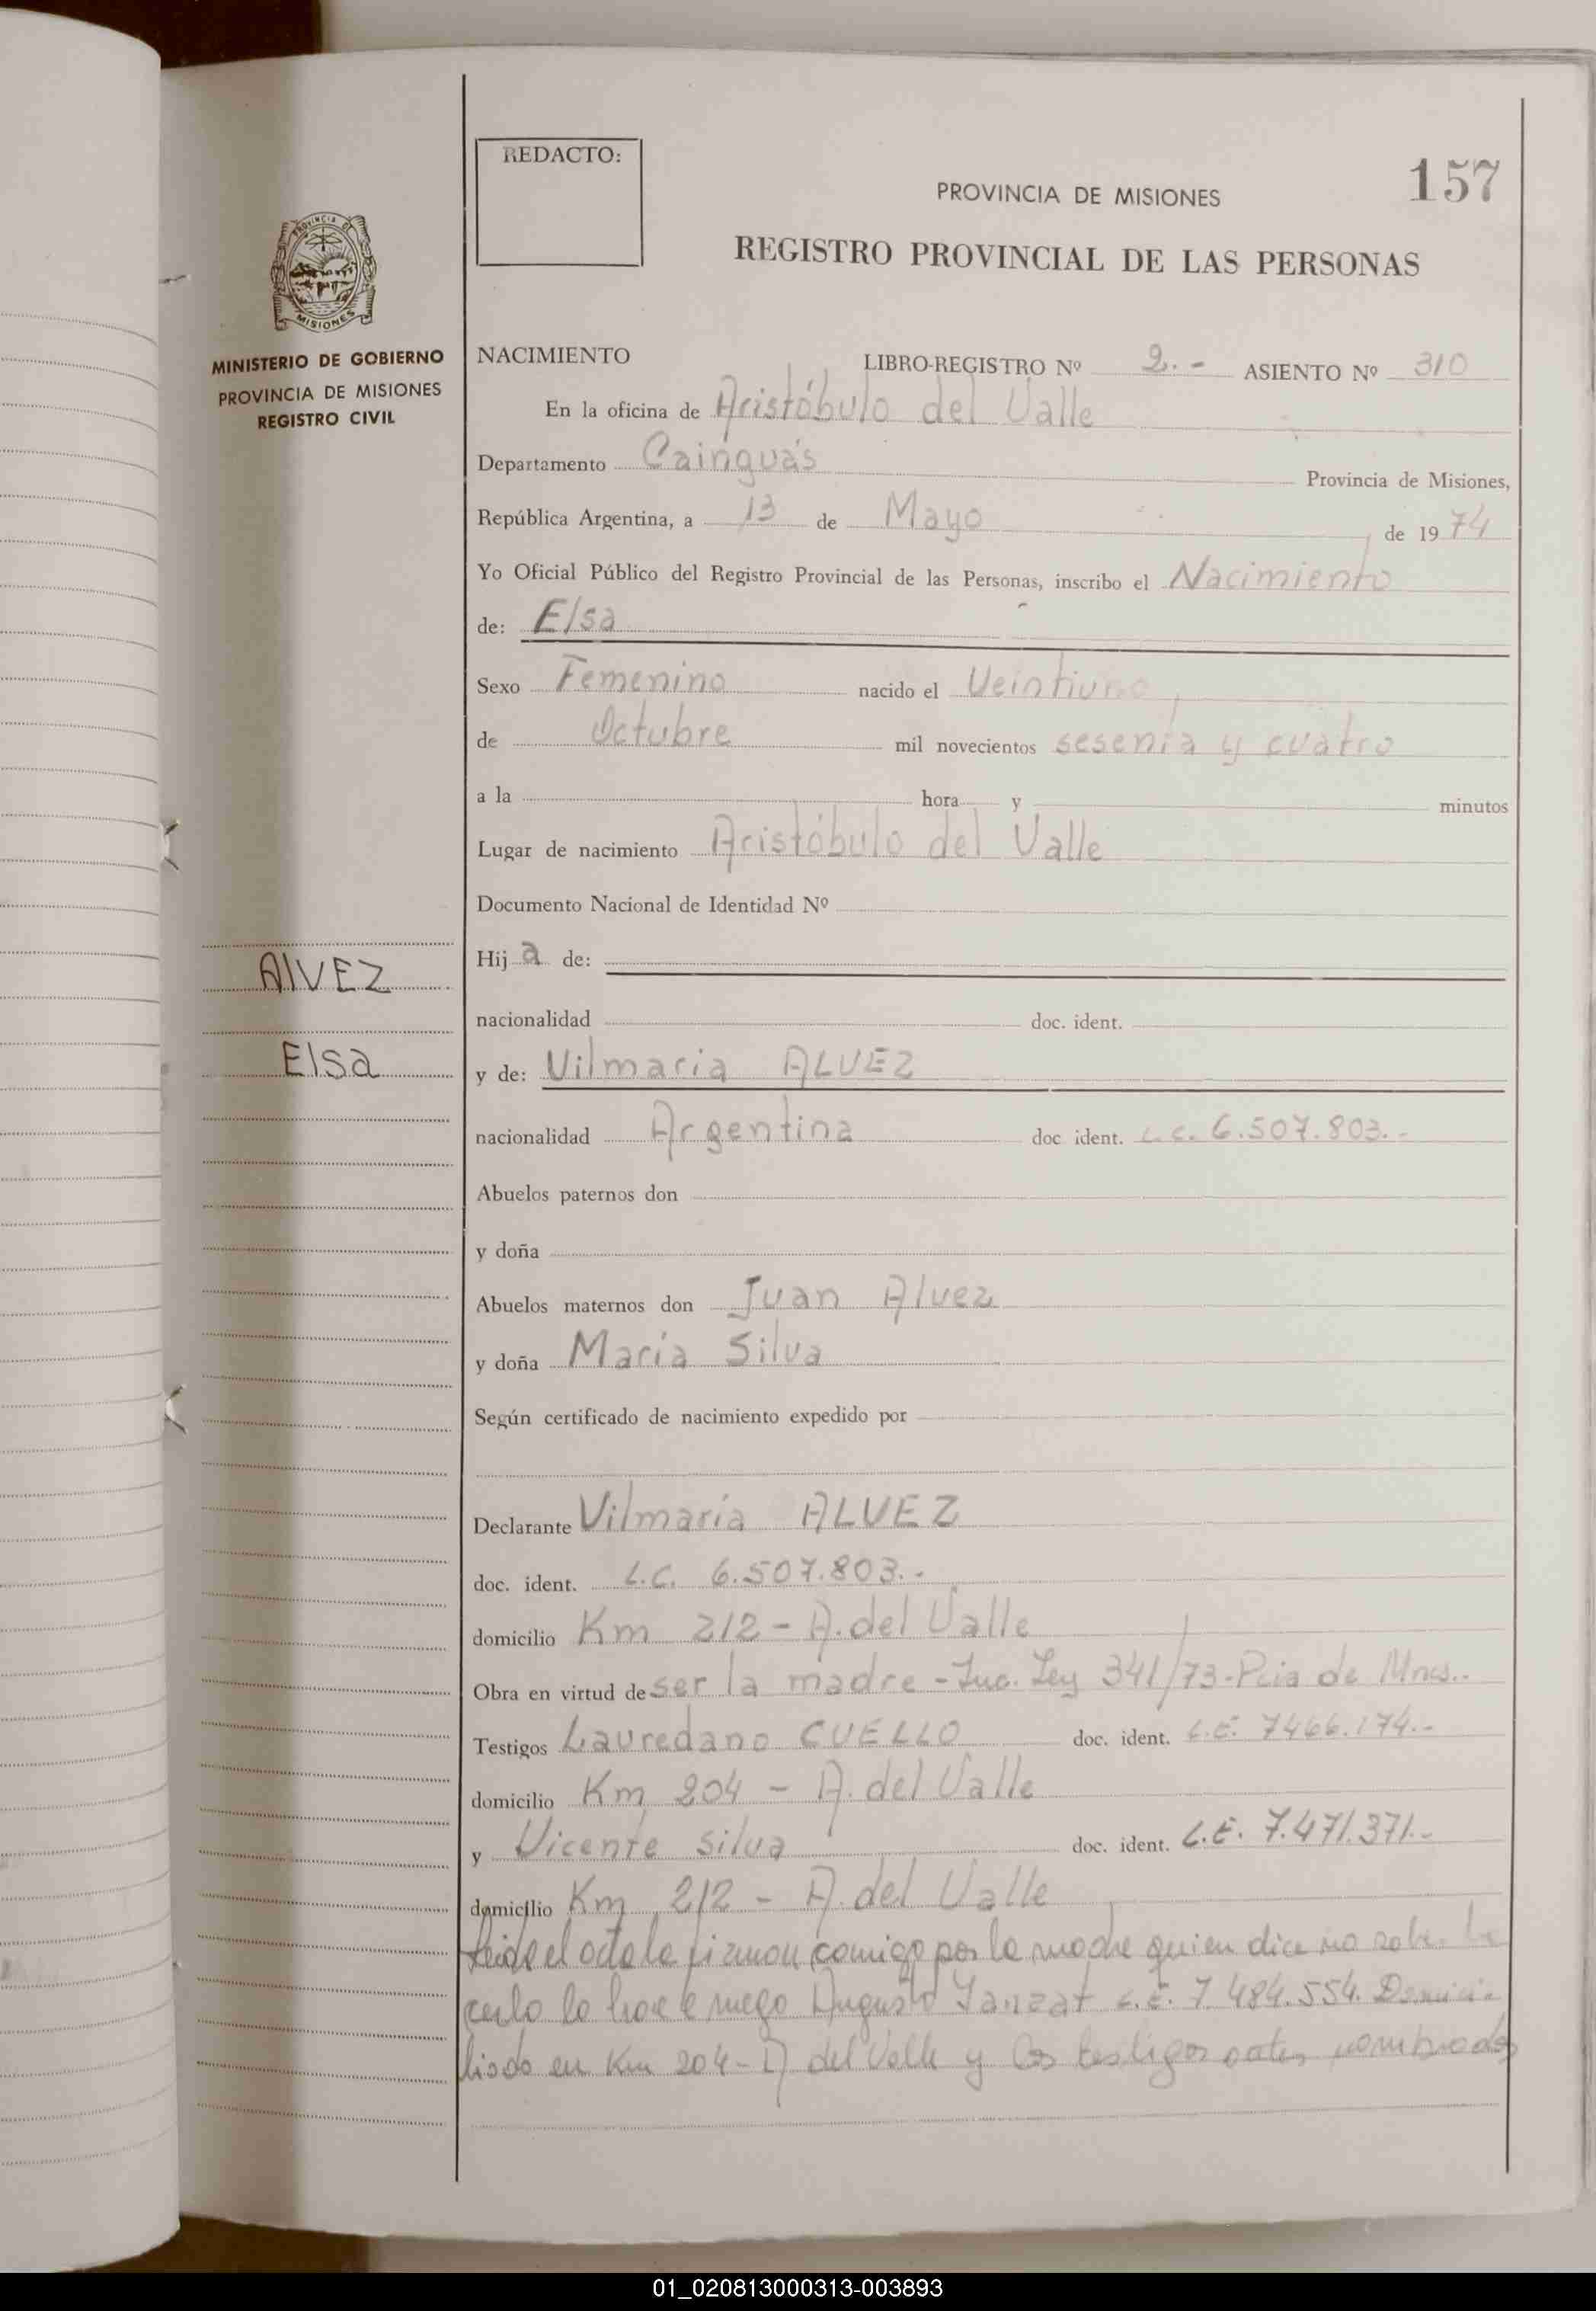 REDACTO:
157
PROVINCIA DE MISIONES
REGISTRO PROVINCIAL DE LAS PERSONAS
PROVINCIA DE
MISIONES
MINISTERIO DE GOBIERNO
PROVINCIA DE MISIONES
REGISTRO CIVIL
NACIMIENTO LIBRO-REGISTRO Nº 2.- ASIENTO Nº 310
En la oficina de Aristóbulo del Valle
Departamento Cainguás Provincia de Misiones,
República Argentina, a 13 de Mayo de 1974
Yo Oficial Público del Registro Provincial de las Personas, inscribo el Nacimiento
de: Elsa
Sexo Femenino nacido el Veintiuno
de Octubre mil novecientos sesenta y cuatro
a la hora y minutos
Lugar de nacimiento Aristóbulo del Valle
Documento Nacional de Identidad Nº
Hija de:
AlVEZ
nacionalidad doc. ident.
Elsa
y de: Vilmaria ALVEZ
nacionalidad Argentina doc ident. L.C. 6.507.803.-
Abuelos paternos don
y doña
Abuelos maternos don Juan Alvez
y doña María Silva
Según certificado de nacimiento expedido por
Declarante Vilmaría ALVEZ
doc. ident. L.C. 6.507.803.-
domicilio Km 212 - A. del Valle
Obra en virtud de ser la madre - Ley 341/73-Pcia de Mnes.-
Testigos Lauredano CUELLO doc. ident. L.E. 7466.174.-
domicilio Km 204 - A. del Valle
y Vicente Silva doc. ident. L.E. 7.471.371.-
domicilio Km 212 - A. del Valle
Leida el acta la firman comigo por la madre quien dice no saber
lo hace a ruego Augusto L.E. 7 484.554. Domici-
liado en Km 204 - A del Valle y los testigos antes nombrados
01_020813000313-003893